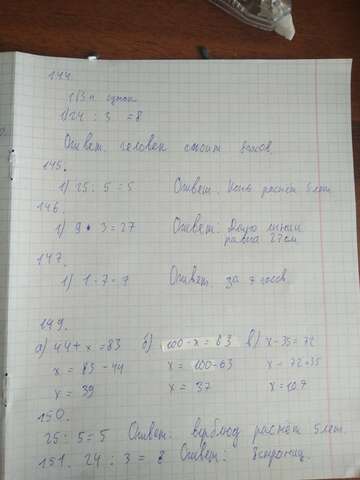 144.
1) 24 : 3 = 8
Ответ. человек спит 8 часов.
145.
1) 25 : 5 = 5 Ответ: Конь растёт 5 лет.
146.
1) 9 • 3 = 27 Ответ: Длина линии
равна 27 см
147.
1) 1 · 7 = 7 Ответ. за 7 часов.
149.
а) 44 + x = 83 б) 100 - x = 63 в) x - 35 = 72
x = 83 - 44 x = 100 - 63 x = 72 + 35
x = 39 x = 37 x = 107
150.
25 : 5 = 5 Ответ: верблюд растёт 5 лет.
151. 24 : 3 = 8 Ответ: 8 страниц.